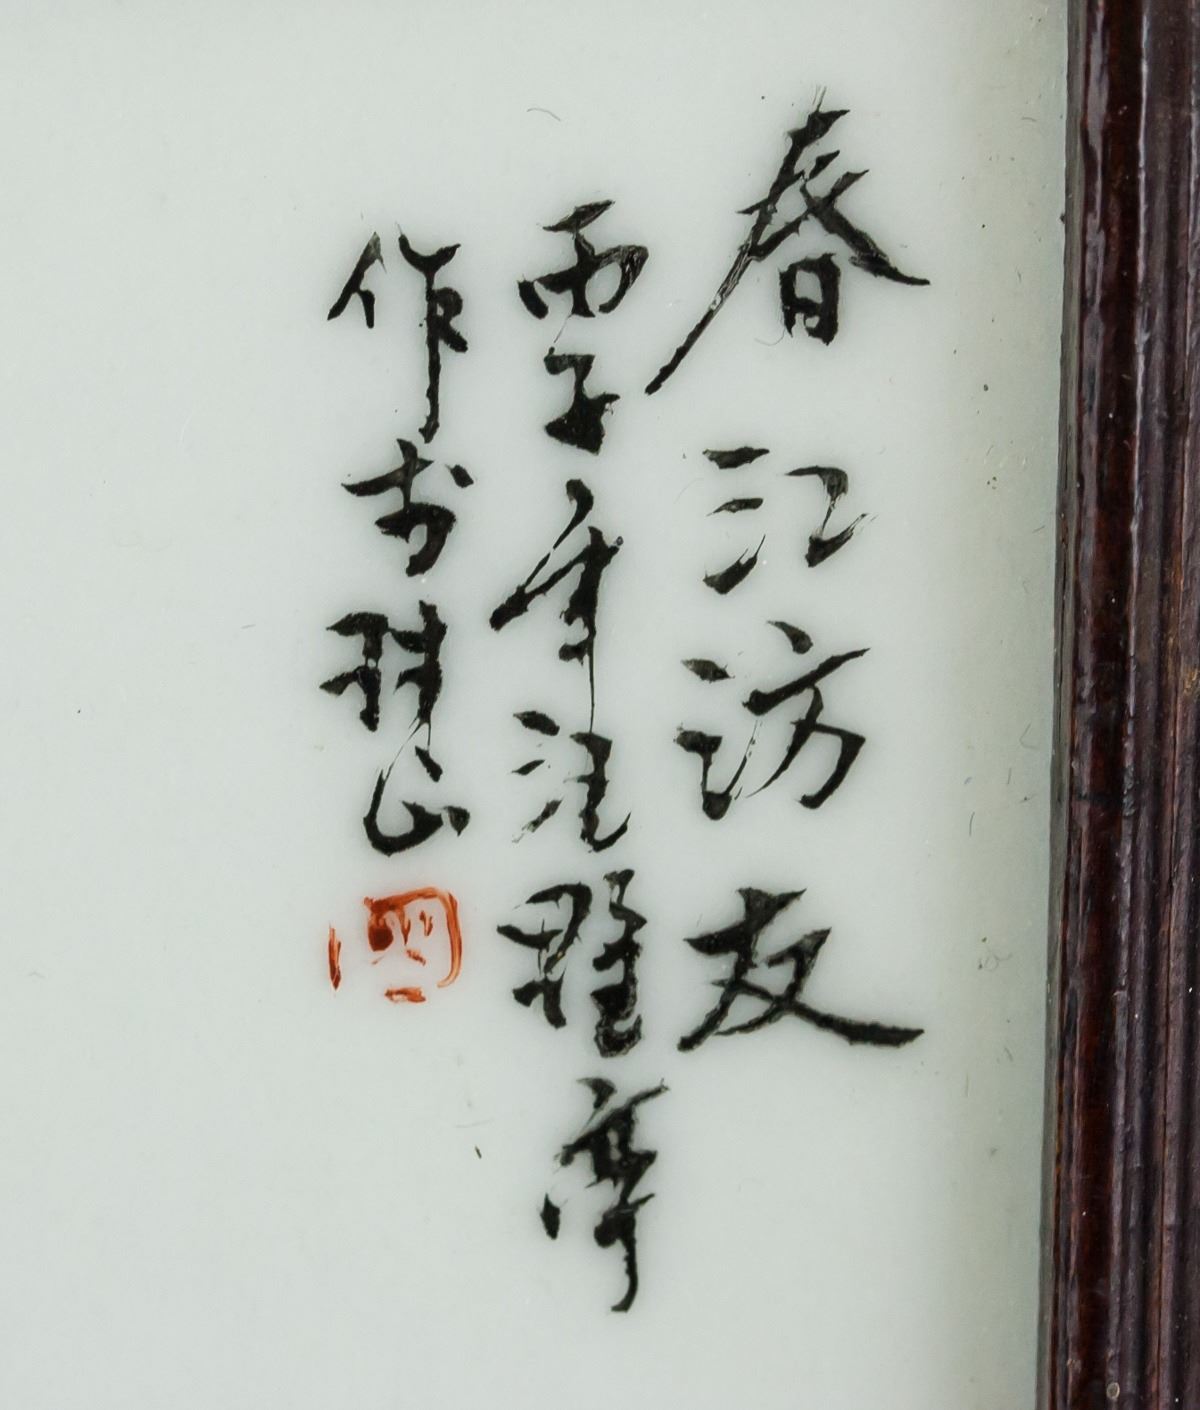 春江訪友
丙子年汪野亭
作於珠山